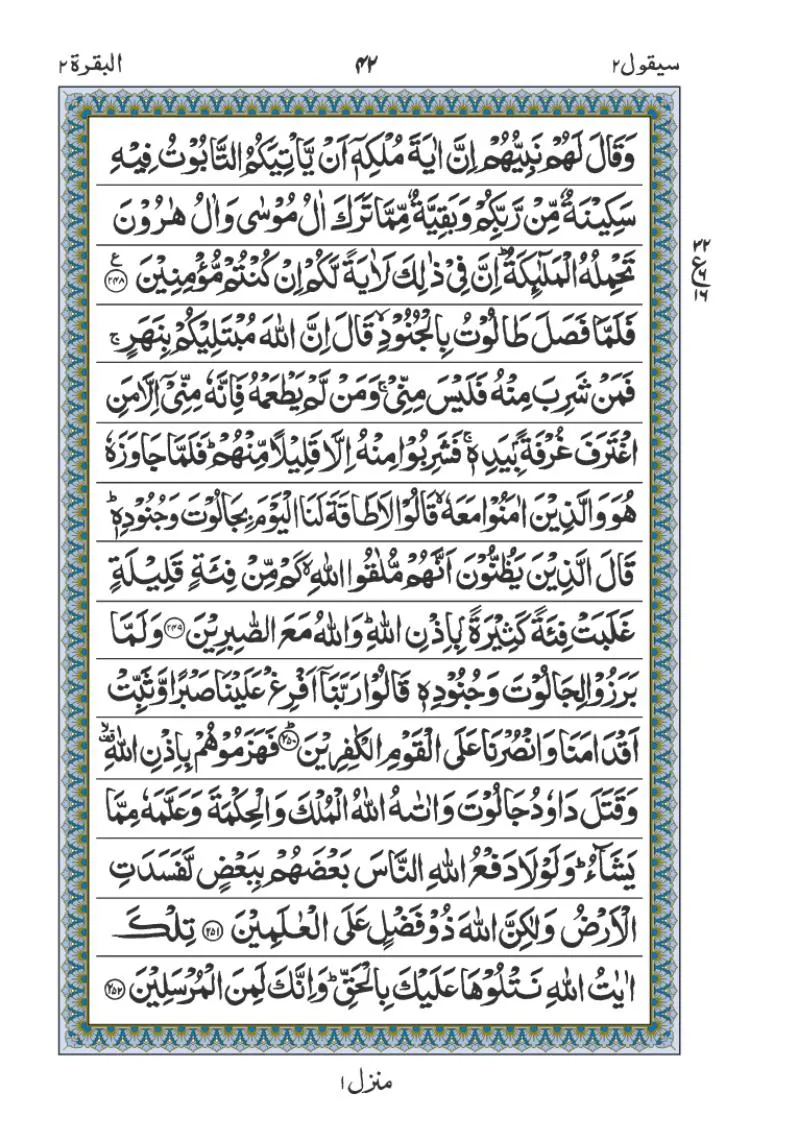 سيقول٢ ۴۲ البقرة٢
وَقَالَ لَهُمْ نَبِيُّهُمْ اِنَّ اٰيَةَ مُلْكِهٖۤ اَنْ يَّاْتِيَكُمُ التَّابُوْتُ فِيْهِ
سَكِيْنَةٌ مِّنْ رَّبِّكُمْ وَبَقِيَّةٌ مِّمَّا تَرَكَ اٰلُ مُوْسٰى وَاٰلُ هٰرُوْنَ
تَحْمِلُهُ الْمَلٰٓئِكَةُ ؕ اِنَّ فِيْ ذٰلِكَ لَاٰيَةً لَّكُمْ اِنْ كُنْتُمْ مُّؤْمِنِيْنَ ﴿۲۴۸﴾ ع
۳۲
ع
۶
۱۶
فَلَمَّا فَصَلَ طَالُوْتُ بِالْجُنُوْدِ ۙ قَالَ اِنَّ اللّٰهَ مُبْتَلِيْكُمْ بِنَهَرٍ ۚ
فَمَنْ شَرِبَ مِنْهُ فَلَيْسَ مِنِّيْ ۚ وَمَنْ لَّمْ يَطْعَمْهُ فَاِنَّهٗ مِنِّيْۤ اِلَّا مَنِ
اغْتَرَفَ غُرْفَةًۢ بِيَدِهٖ ۚ فَشَرِبُوْا مِنْهُ اِلَّا قَلِيْلًا مِّنْهُمْ ؕ فَلَمَّا جَاوَزَهٗ
هُوَ وَالَّذِيْنَ اٰمَنُوْا مَعَهٗ ۙ قَالُوْا لَا طَاقَةَ لَنَا الْيَوْمَ بِجَالُوْتَ وَجُنُوْدِهٖ ؕ
قَالَ الَّذِيْنَ يَظُنُّوْنَ اَنَّهُمْ مُّلٰقُوا اللّٰهِ ۙ كَمْ مِّنْ فِئَةٍ قَلِيْلَةٍ
غَلَبَتْ فِئَةً كَثِيْرَةًۢ بِاِذْنِ اللّٰهِ ؕ وَاللّٰهُ مَعَ الصّٰبِرِيْنَ ﴿۲۴۹﴾ وَلَمَّا
بَرَزُوْا لِجَالُوْتَ وَجُنُوْدِهٖ قَالُوْا رَبَّنَاۤ اَفْرِغْ عَلَيْنَا صَبْرًا وَّثَبِّتْ
اَقْدَامَنَا وَانْصُرْنَا عَلَى الْقَوْمِ الْكٰفِرِيْنَ ﴿۲۵۰﴾ ؕ فَهَزَمُوْهُمْ بِاِذْنِ اللّٰهِ ۙ
وَقَتَلَ دَاوٗدُ جَالُوْتَ وَاٰتٰىهُ اللّٰهُ الْمُلْكَ وَالْحِكْمَةَ وَعَلَّمَهٗ مِمَّا
يَشَآءُ ؕ وَلَوْلَا دَفْعُ اللّٰهِ النَّاسَ بَعْضَهُمْ بِبَعْضٍ لَّفَسَدَتِ
الْاَرْضُ وَلٰكِنَّ اللّٰهَ ذُوْ فَضْلٍ عَلَى الْعٰلَمِيْنَ ﴿۲۵۱﴾ تِلْكَ
اٰيٰتُ اللّٰهِ نَتْلُوْهَا عَلَيْكَ بِالْحَقِّ ؕ وَاِنَّكَ لَمِنَ الْمُرْسَلِيْنَ ﴿۲۵۲﴾
منزل١